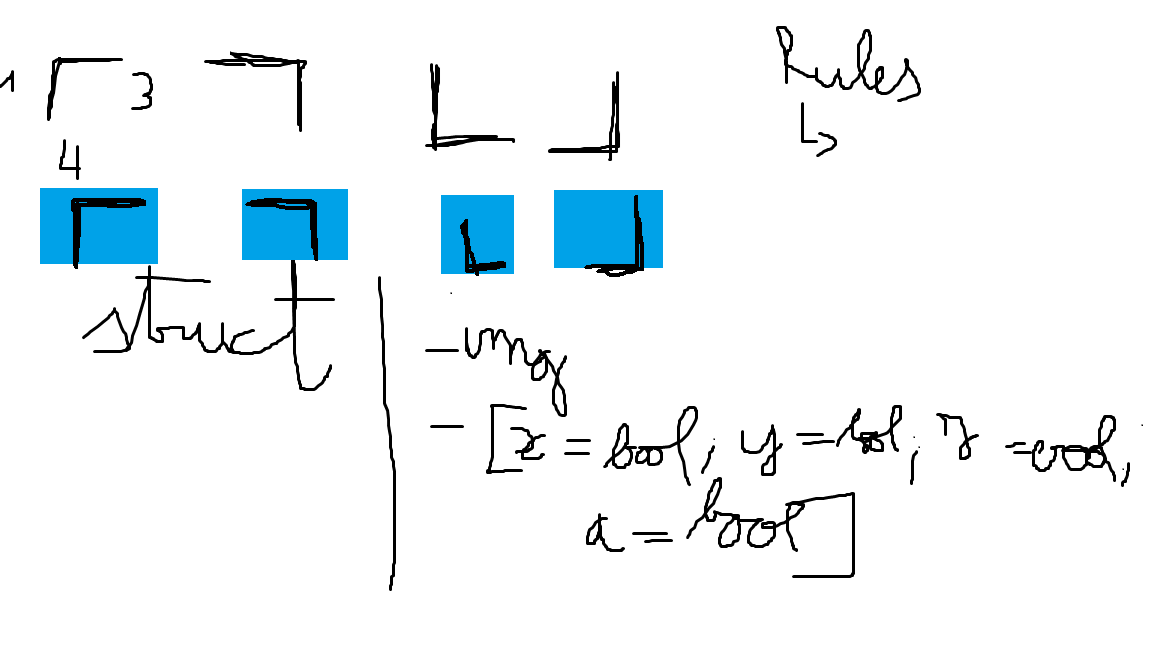 3
Rules
4
struct
- img
- [x = bool, y = bool, z = bool,
a = bool]